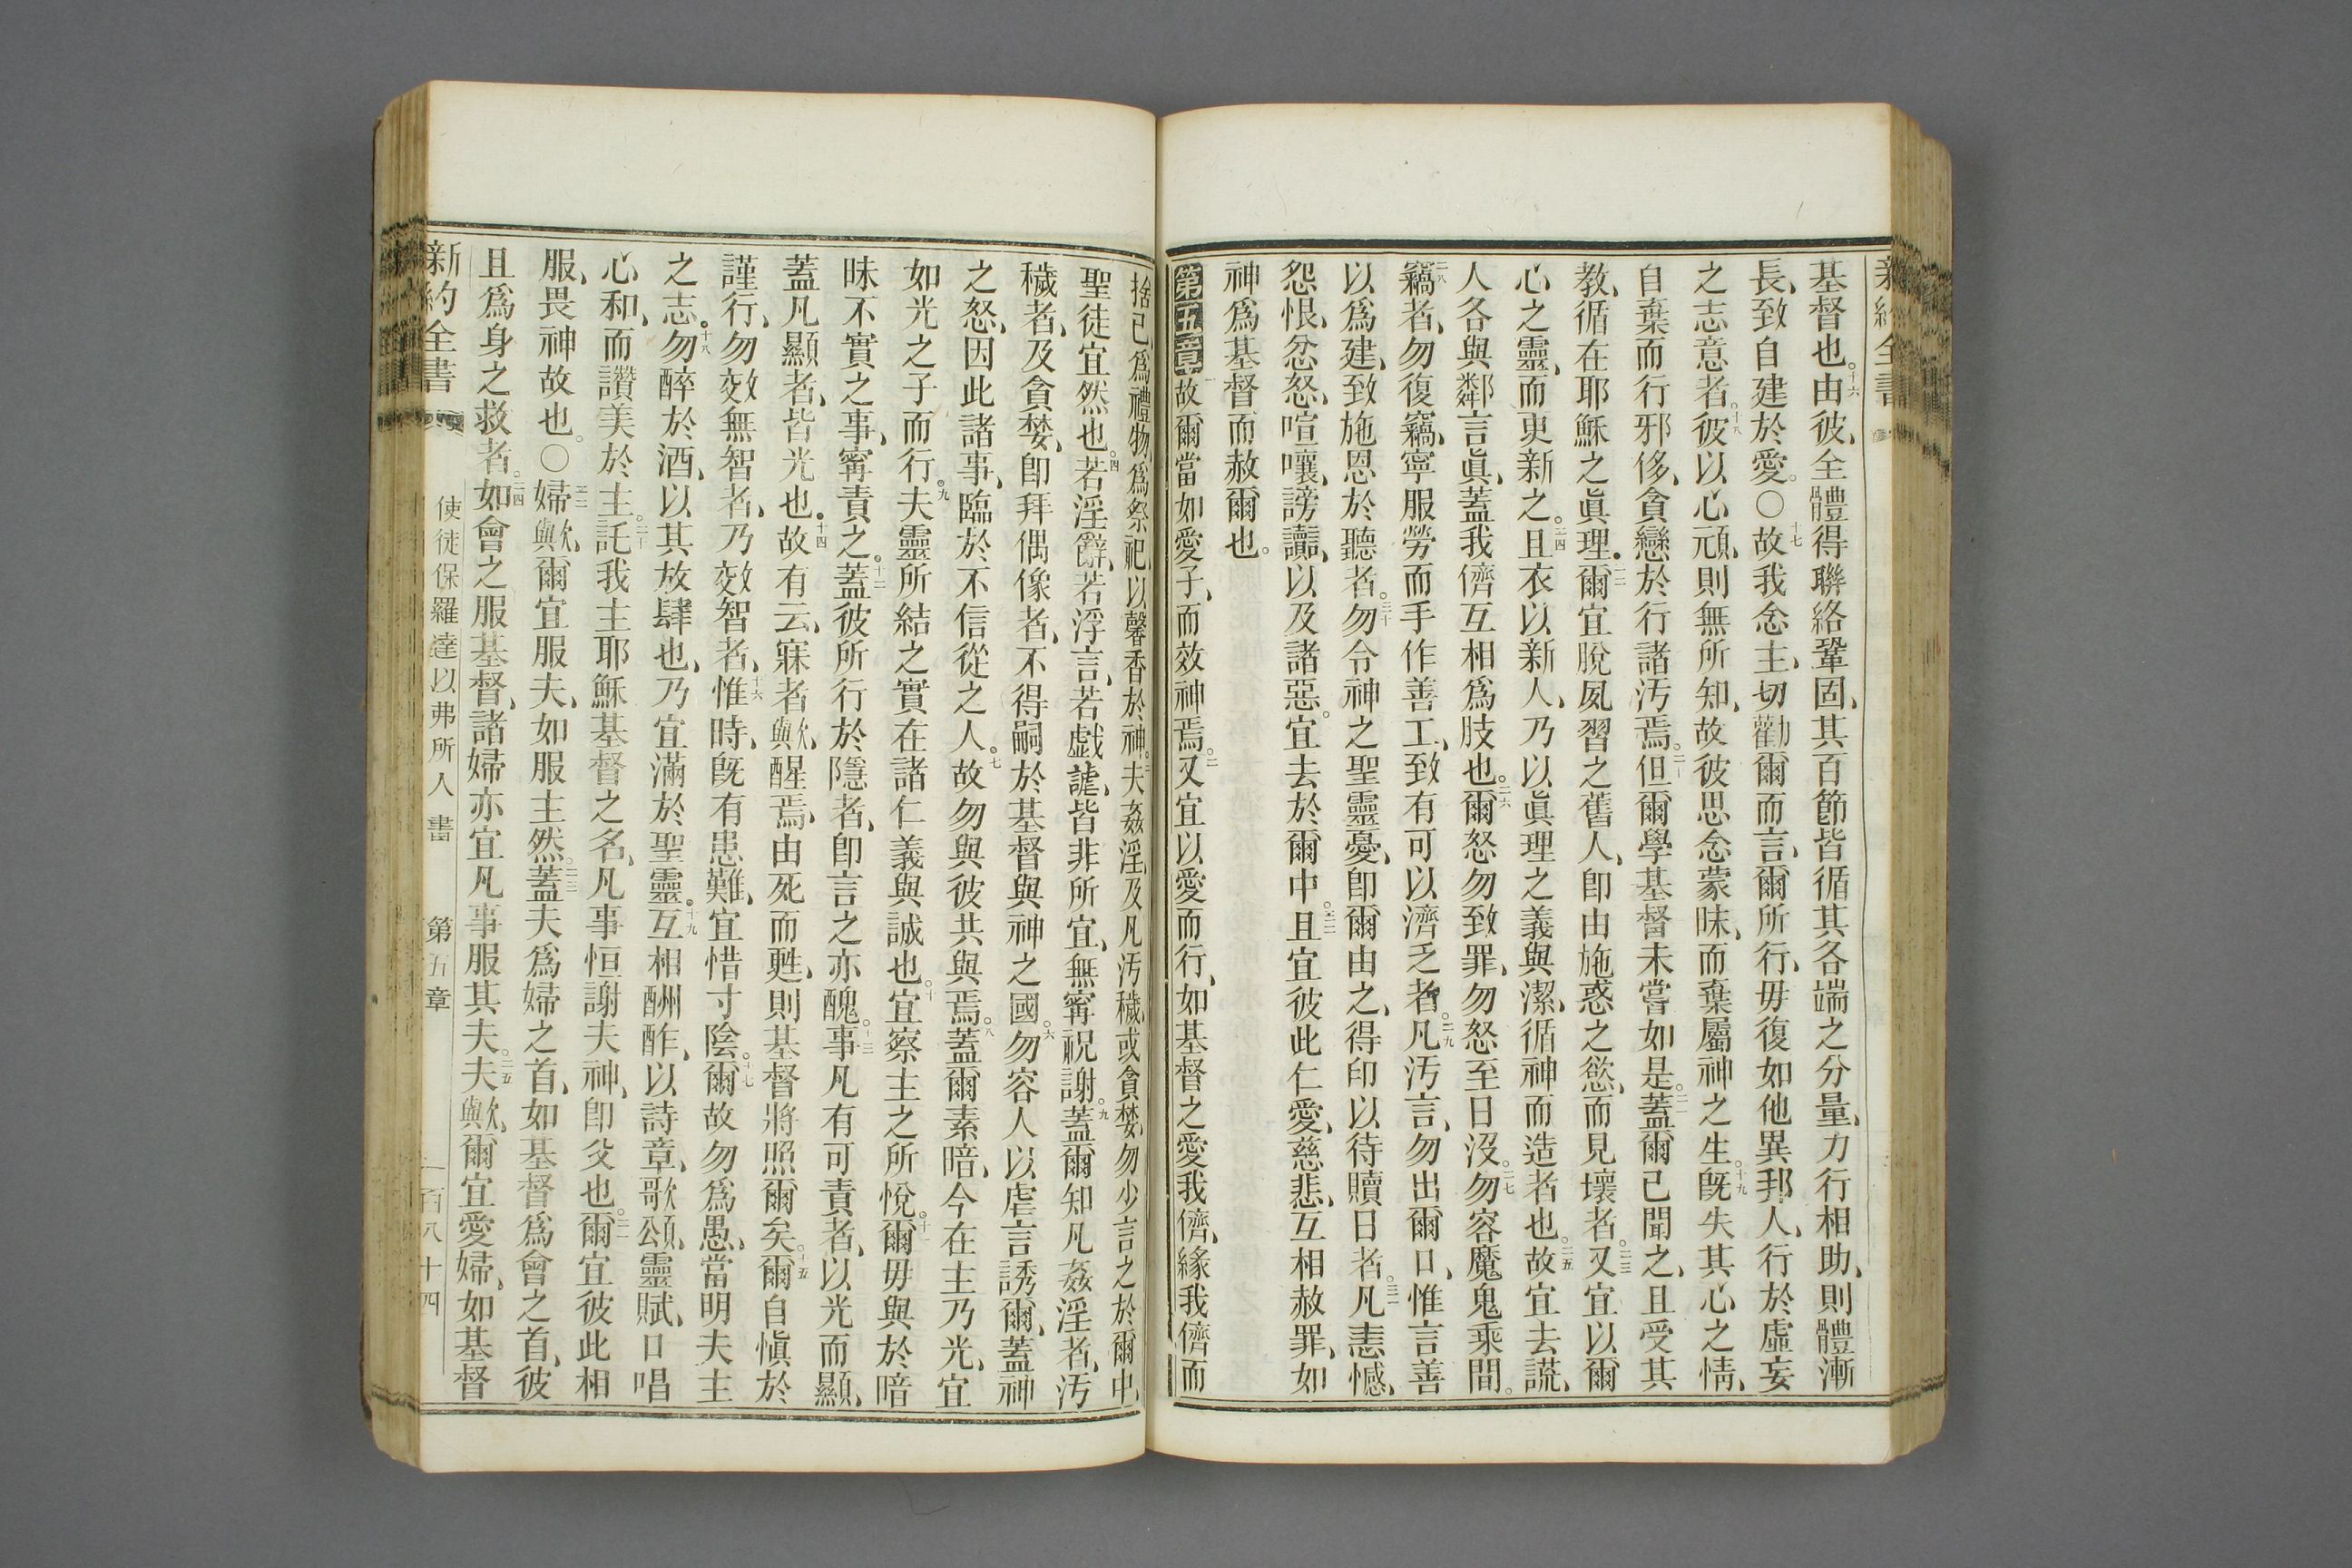 基督也。十六由彼、全體得聯絡鞏固、其百節皆循其各端之分量、力行相助、則體漸
長、致自建於愛。○十七故我念主、切勸爾而言、爾所行、毋復如他異邦人、行於虛妄
之志意者。十八彼以心頑、則無所知、故彼思念蒙昧、而棄屬神之生。十九旣失其心之情、
自棄而行邪侈、貪戀於行諸汚焉。二十但爾學基督未嘗如是。二一蓋爾已聞之、且受其
教、循在耶穌之眞理。二二爾宜脫夙習之舊人、卽由施惑之慾、而見壞者。二三又宜以爾
心之靈、而更新之。二四且衣以新人、乃以眞理之義與潔、循神而造者也。二五故宜去謊、
人各與鄰言眞、蓋我儕互相爲肢也。二六爾怒勿致罪、勿怒至日沒。二七勿容魔鬼乘間。
二八竊者、勿復竊、寧服勞而手作善工、致有可以濟乏者。二九凡汚言、勿出爾口、惟言善
以爲建、致施恩於聽者。三十勿令神之聖靈憂、卽爾由之、得印以待贖日者。三一凡恚憾、
怨恨、忿怒、喧嚷、謗讟、以及諸惡。宜去於爾中。三二且宜彼此仁愛、慈悲、互相赦罪、如
神爲基督而赦爾也。
第五章 一故爾當如愛子、而效神焉。二又宜以愛而行、如基督之愛我儕、緣我儕而
捨己、爲禮物、爲祭祀、以馨香於神。三夫姦淫、及凡汚穢、或貪婪、勿少言之於爾中、
聖徒宜然也。四若淫辭、若浮言、若戲謔、皆非所宜、無寧祝謝。五蓋爾知凡姦淫者、汚
穢者、及貪婪、卽拜偶像者、不得嗣於基督與神之國。六勿容人以虛言誘爾、蓋神
之怒、因此諸事、臨於不信從之人。七故勿與彼共與焉。八蓋爾素暗、今在主乃光、宜
如光之子而行。九夫靈所結之實、在諸仁義與誠也。十宜察主之所悅。十一爾毋與於暗
昧不實之事、寧責之。十二蓋彼所行於隱者、卽言之亦醜。十三事凡有可責者、以光而顯、
蓋凡顯者、皆光也。十四故有云、寐者歟、醒焉、由死而甦、則基督將照爾矣。十五爾自愼於
謹行、勿效無智者、乃效智者、十六惟時、旣有患難、宜惜寸陰。十七爾故勿爲愚、當明夫主
之志。十八勿醉於酒、以其放肆也、乃宜滿於聖靈。十九互相酬酢、以詩章、歌頌、靈賦、口唱
心和、而讚美於主。二十託我主耶穌基督之名、凡事恒謝夫神、卽父也。二一爾宜彼此相
服、畏神故也。○二二婦歟、爾宜服夫、如服主然。二三蓋夫爲婦之首、如基督爲會之首、彼
且爲身之救者。二四如會之服基督、諸婦亦宜凡事服其夫。二五夫歟、爾宜愛婦、如基督
新約全書 使徒保羅達以弗所人書 第五章 一百八十四